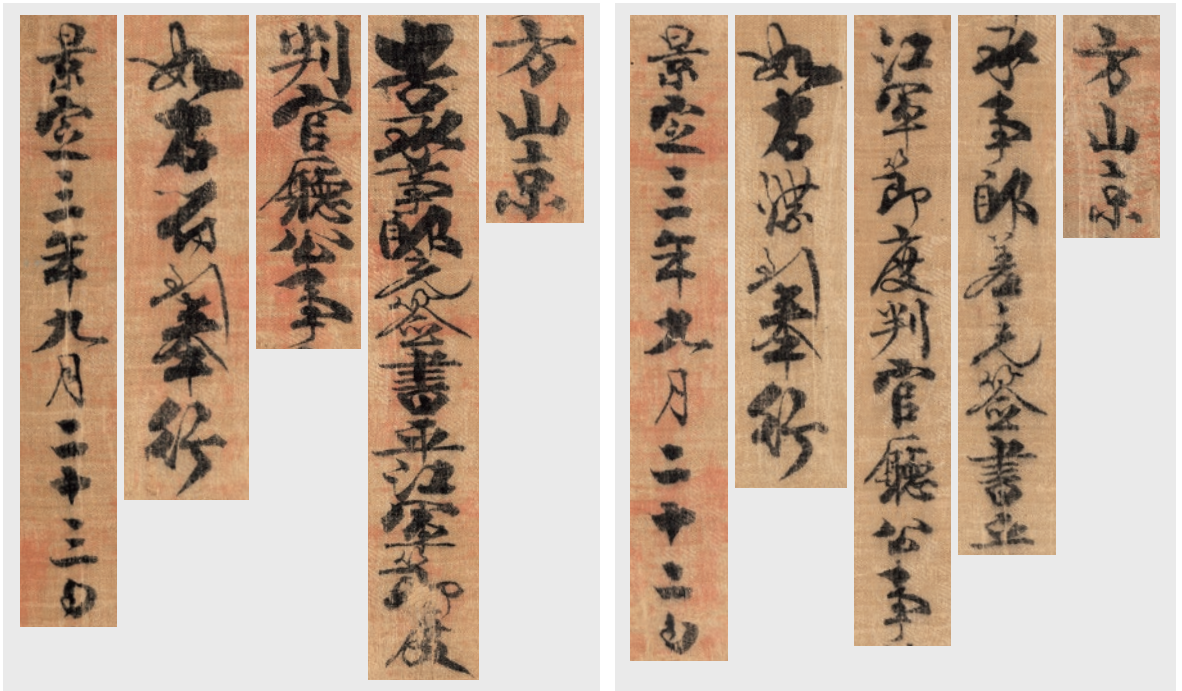 方山京
承事郎差充簽書平
江軍節度判官廳公事
如右牒到奉行
景定三年九月二十二日
方山京
告承事郎充簽書平江軍節度
判官廳公事
如右符到奉行
景定三年九月二十三日